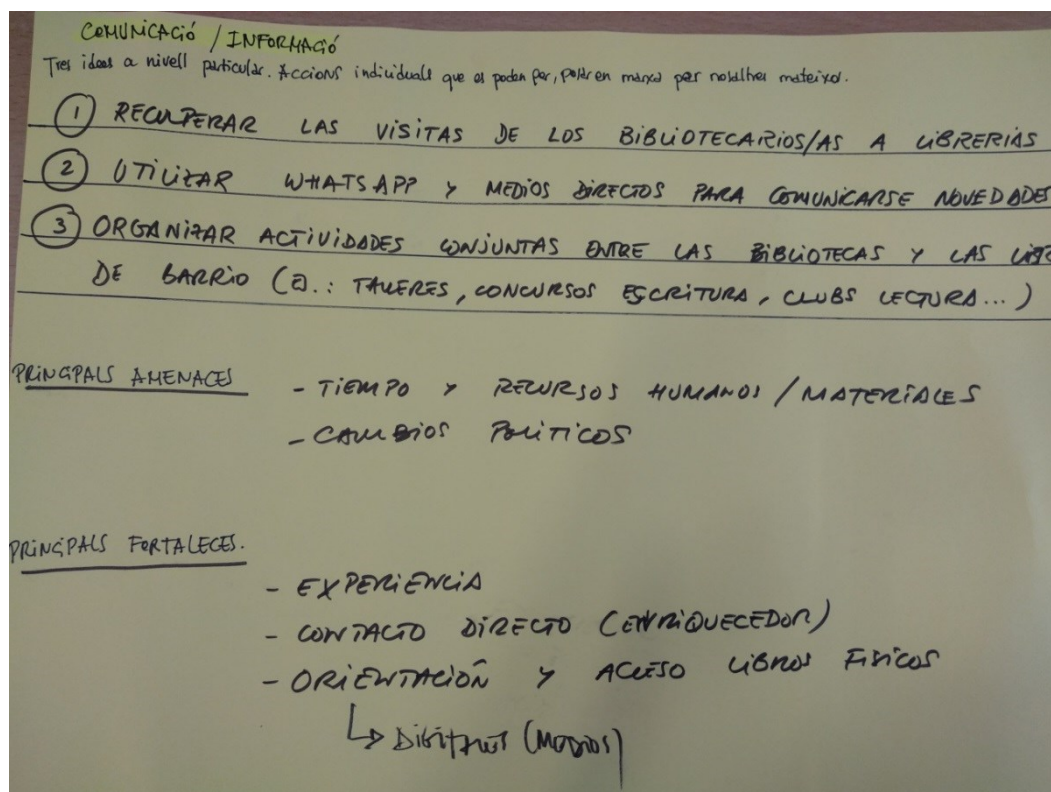 COMUNICACIÓ / INFORMACIÓ
Tres idees a nivell particular. Accions individuals que es poden fer, posar en marxa per nosaltres mateixos.
1 RECUPERAR LAS VISITAS DE LOS BIBLIOTECARIOS/AS A LIBRERIAS
2 UTILIZAR WHATSAPP Y MEDIOS DIRECTOS PARA COMUNICARSE NOVEDADES
3 ORGANIZAR ACTIVIDADES CONJUNTAS ENTRE LAS BIBLIOTECAS Y LAS LIBR
DE BARRIO (EJ.: TALLERES, CONCURSOS ESCRITURA, CLUBS LECTURA...)
PRINCIPALS AMENACES
- TIEMPO Y RECURSOS HUMANOS / MATERIALES
- CAMBIOS POLITICOS
PRINCIPALS FORTALECES.
- EXPERIENCIA
- CONTACTO DIRECTO (ENRIQUECEDOR)
- ORIENTACIÓN Y ACCESO LIBROS FISICOS
↳ DIGITALES (MEDIOS)